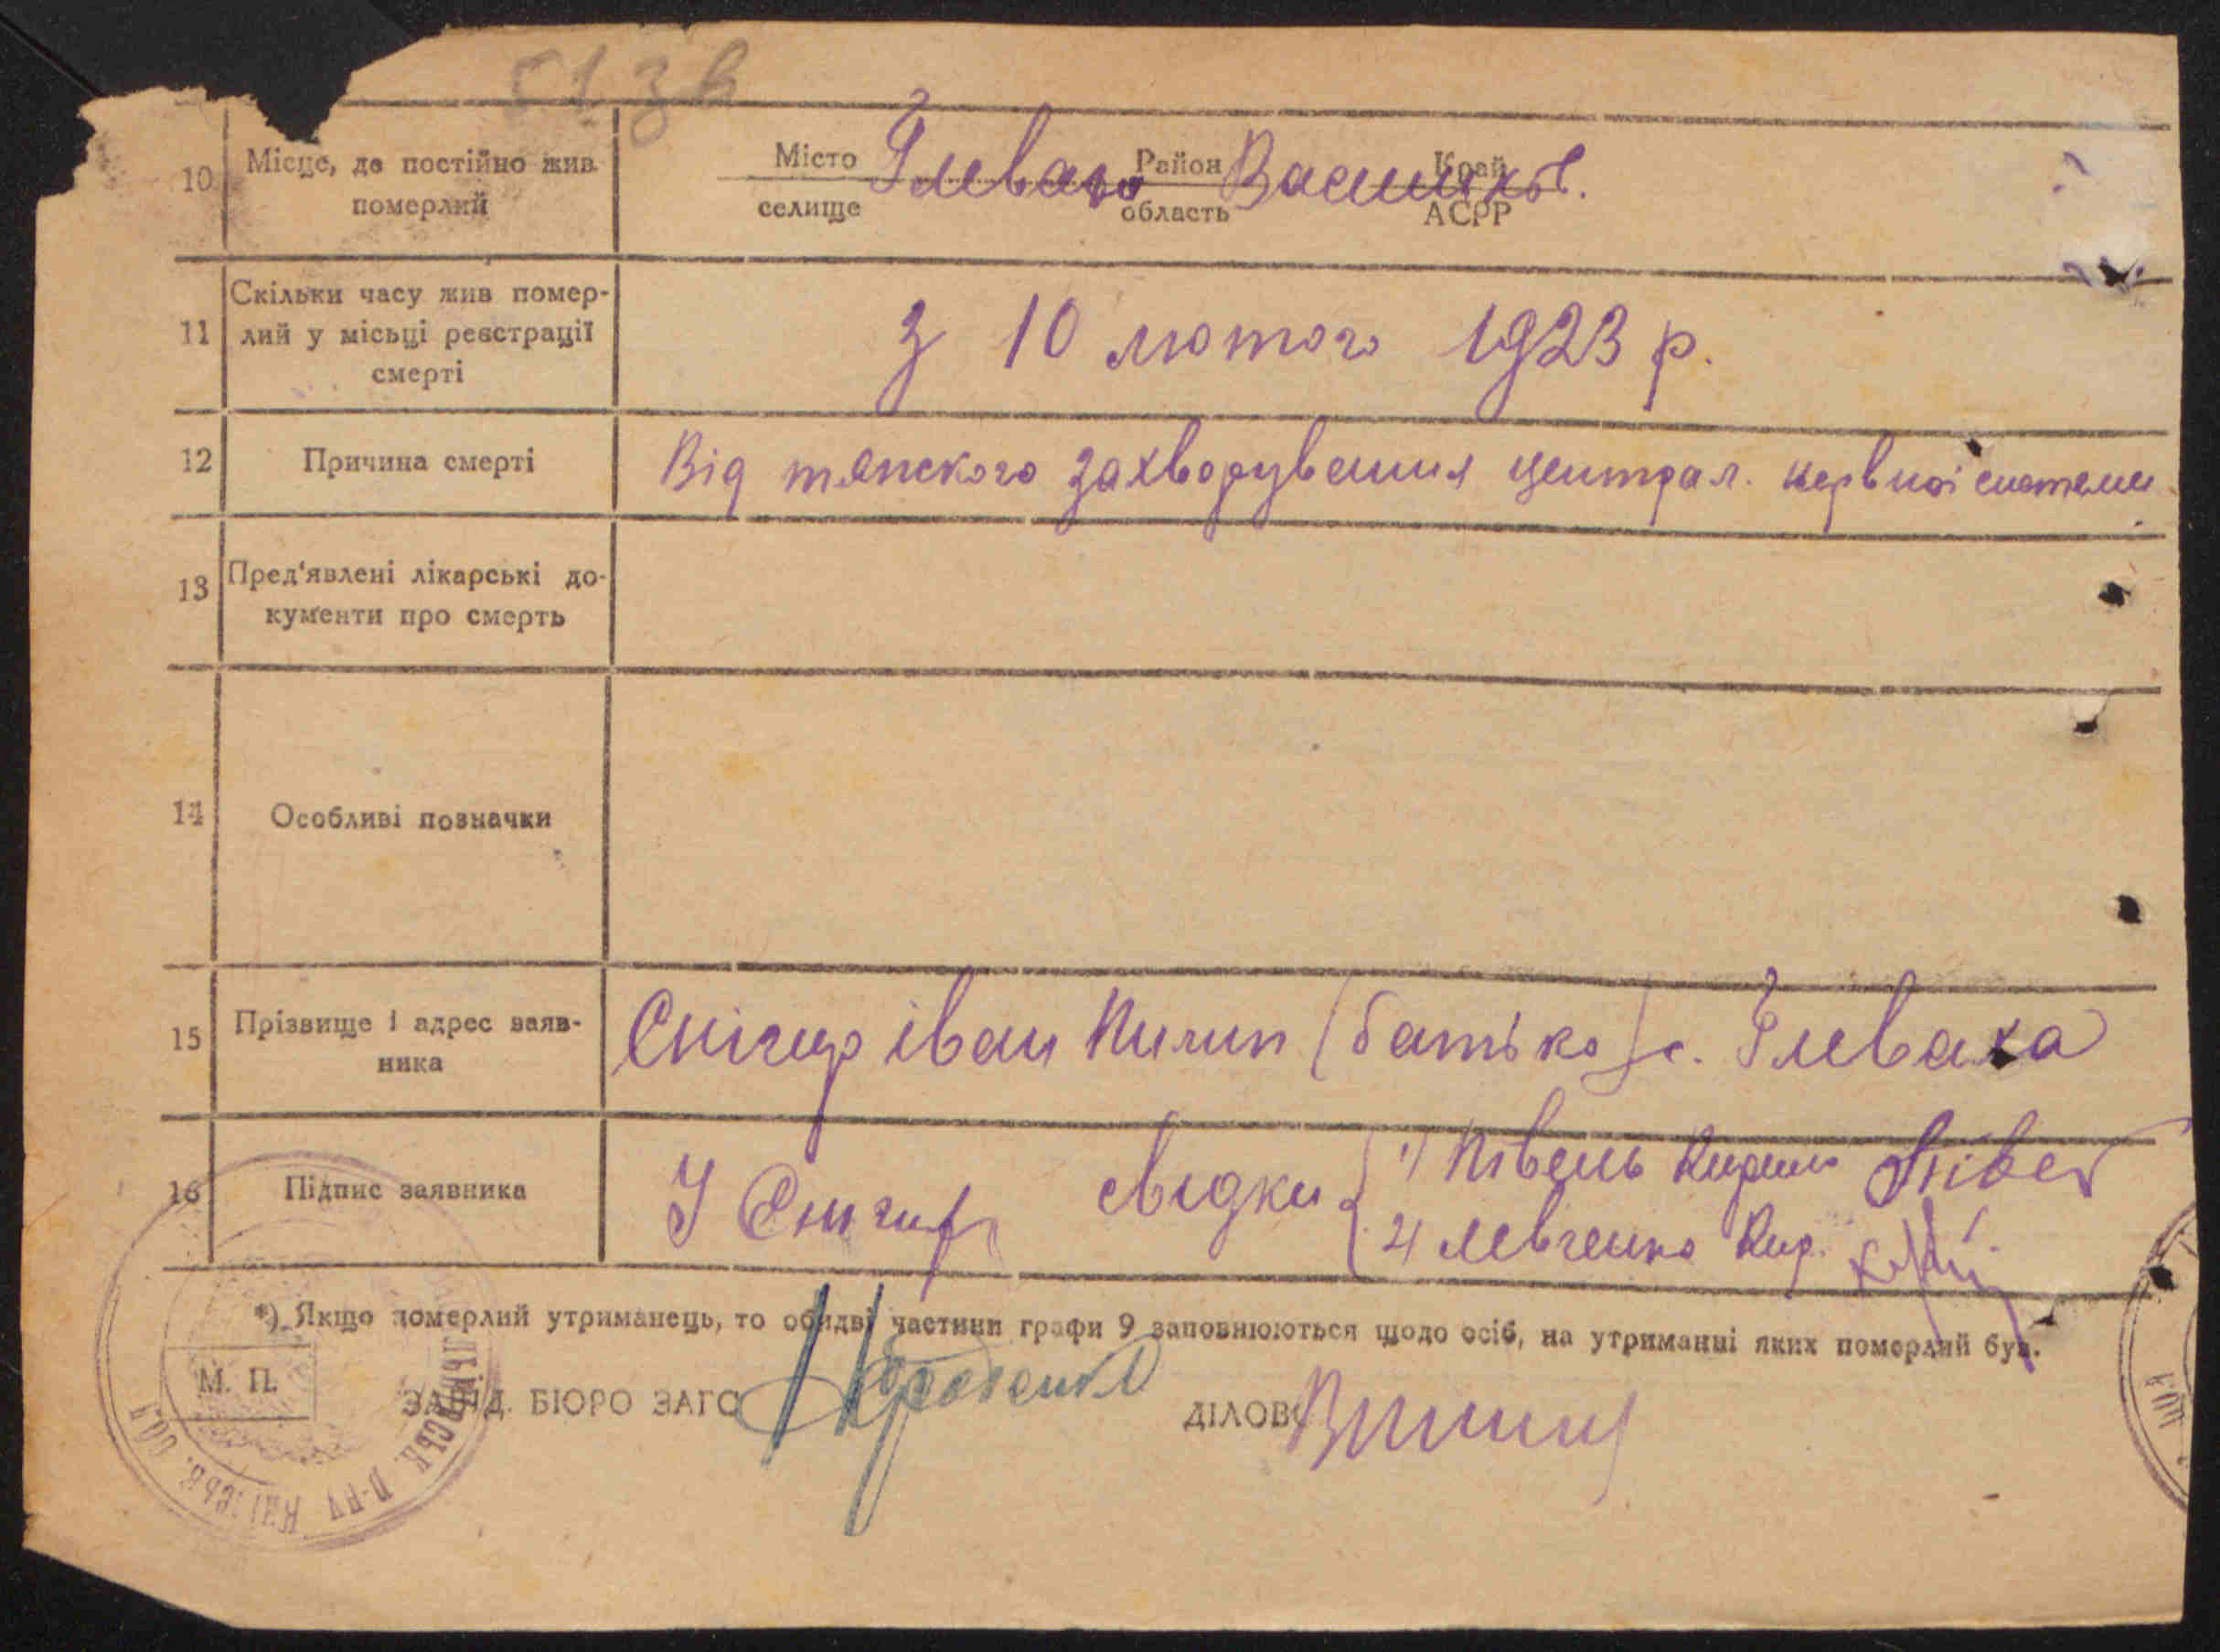 51 зв
10 Місце, де постійно жив померлий
Місто Глеваха Район Васильків. Край
селище область АСРР
11 Скільки часу жив помер-
лий у місьці реєстрації
смерті
З 10 лютого 1923 р.
12 Причина смерті
Від тяжского захворування централ. нервної системи
13 Пред'явлені лікарські до-
кументи про смерть
14 Особливі позначки
15 Прізвище і адрес заяв-
ника
Снігир Іван Пилип (батько) с. Глеваха
16 Підпис заявника
І Снігир свідки 1) Півень Кирило
2) Левченко Кир.
*) Якщо померлий утриманець, то обидві частини графи 9 заповнюються щодо осіб, на утриманні яких померлий був.
М. П.
ЗАВІД. БЮРО ЗАГС
ДІЛОВ
Р-НУ КИЇВСЬК. ОБЛ